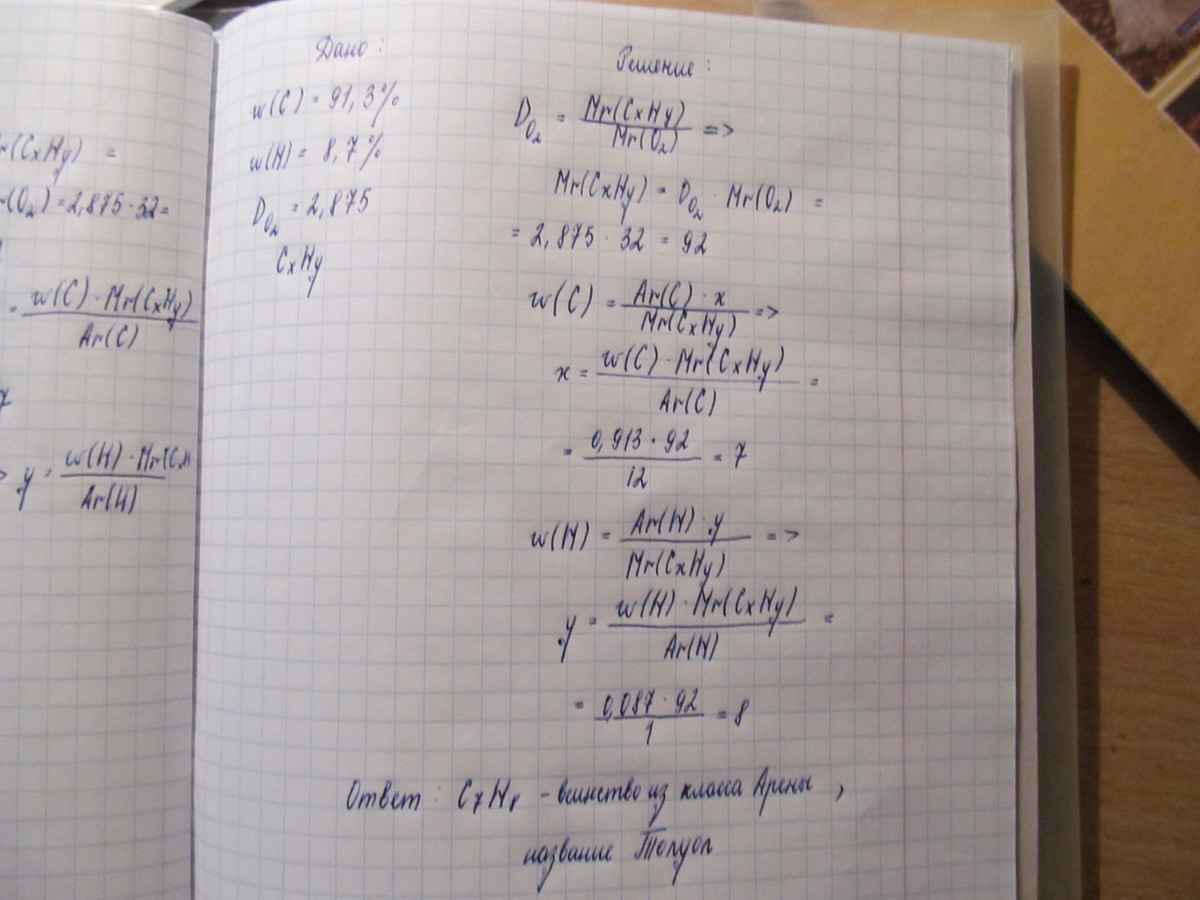 r(CxHy) =
r(O2)=2,875·32=
= w(C)·Mr(CxHy)
Ar(C)
7
y = w(H)·Mr(Cx
Ar(H)
Дано:
w(C) = 91,3%
w(H) = 8,7%
DO2 = 2,875
CxHy
Решение:
DO2 = Mr(CxHy) =>
Mr(O2)
Mr(CxHy) = DO2 · Mr(O2) =
= 2,875 · 32 = 92
w(C) = Ar(C) · x =>
Mr(CxHy)
x = w(C) · Mr(CxHy) =
Ar(C)
= 0,913 · 92 = 7
12
w(H) = Ar(H) · y =>
Mr(CxHy)
y = w(H) · Mr(CxHy) =
Ar(H)
= 0,087 · 92 = 8
1
Ответ: C7H8 - из класса Арены,
название Толуол